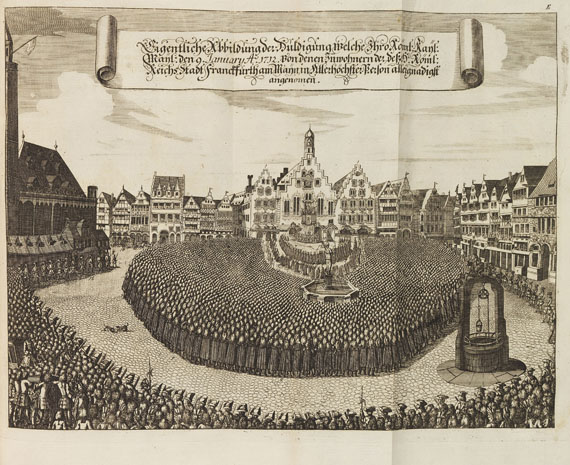 E
Eigentliche Abbildung der Huldigung welche Ihro Röml: Kayl:
Mayt: den 9 January Aº 1712. von denen Inwohnern der deß H: Röml:
Reichs Stadt Franckfurth am Mayn in Allerhöchster Person allergnädigst
angenomen.